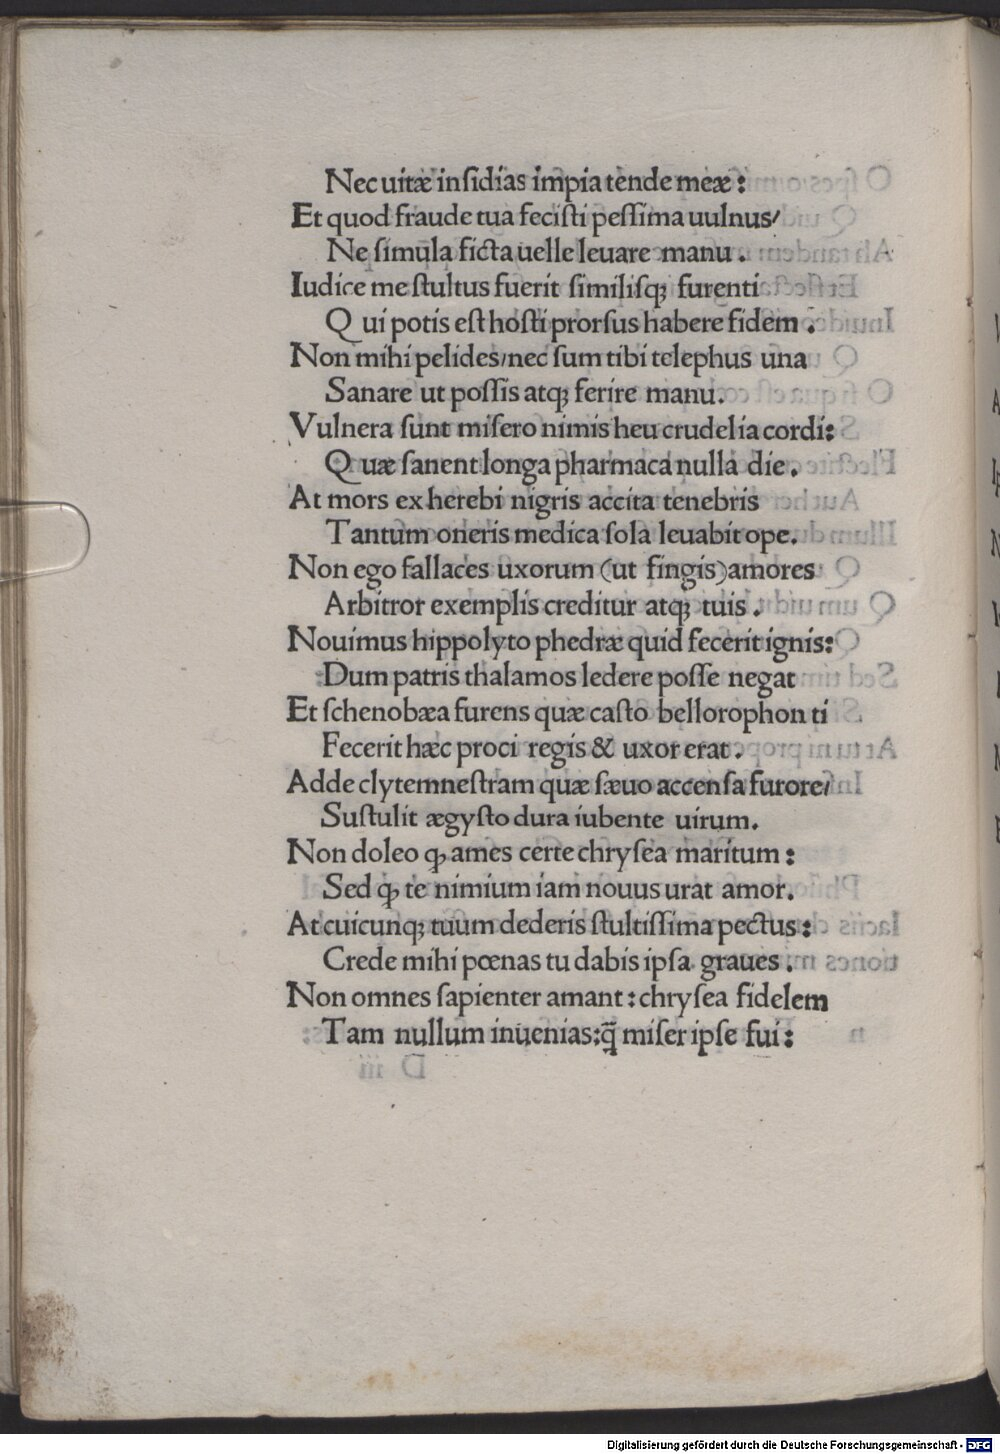 Nec uitæ inſidias impia tende meæ:
Et quod fraude tua feciſti peſſima uulnus/
Ne ſimula ficta uelle leuare manu.
Iudice me ſtultus fuerit ſimiliſqꝫ furenti
Qui potis eſt hoſti prorſus habere fidem.
Non mihi pelides/nec ſum tibi telephus una
Sanare ut poſſis atqꝫ ferire manu.
Vulnera ſunt miſero nimis heu crudelia cordi:
Quæ ſanent longa pharmaca nulla die.
At mors ex herebi nigris accita tenebris
Tantum oneris medica ſola leuabit ope.
Non ego fallaces uxorum (ut fingis) amores
Arbitror exemplis creditur atqꝫ tuis.
Nouimus hippolyto phedræ quid fecerit ignis:
Dum patris thalamos ledere poſſe negat
Et ſchenobæa furens quæ caſto bellorophonti
Fecerit hæc proci regis & uxor erat.
Adde clytemneſtram quæ ſæuo accenſa furore/
Suſtulit ægyſto dura iubente uirum.
Non doleo ꝙ ames certe chryſea maritum:
Sed ꝙ te nimium iam nouus urat amor.
At cuicunqꝫ tuum dederis ſtultiſſima pectus:
Crede mihi pœnas tu dabis ipſa graues.
Non omnes ſapienter amant: chryſea fidelem
Tam nullum inuenias:q̄ miſer ipſe fui:
Digitalisierung gefördert durch die Deutsche Forschungsgemeinschaft - DFG